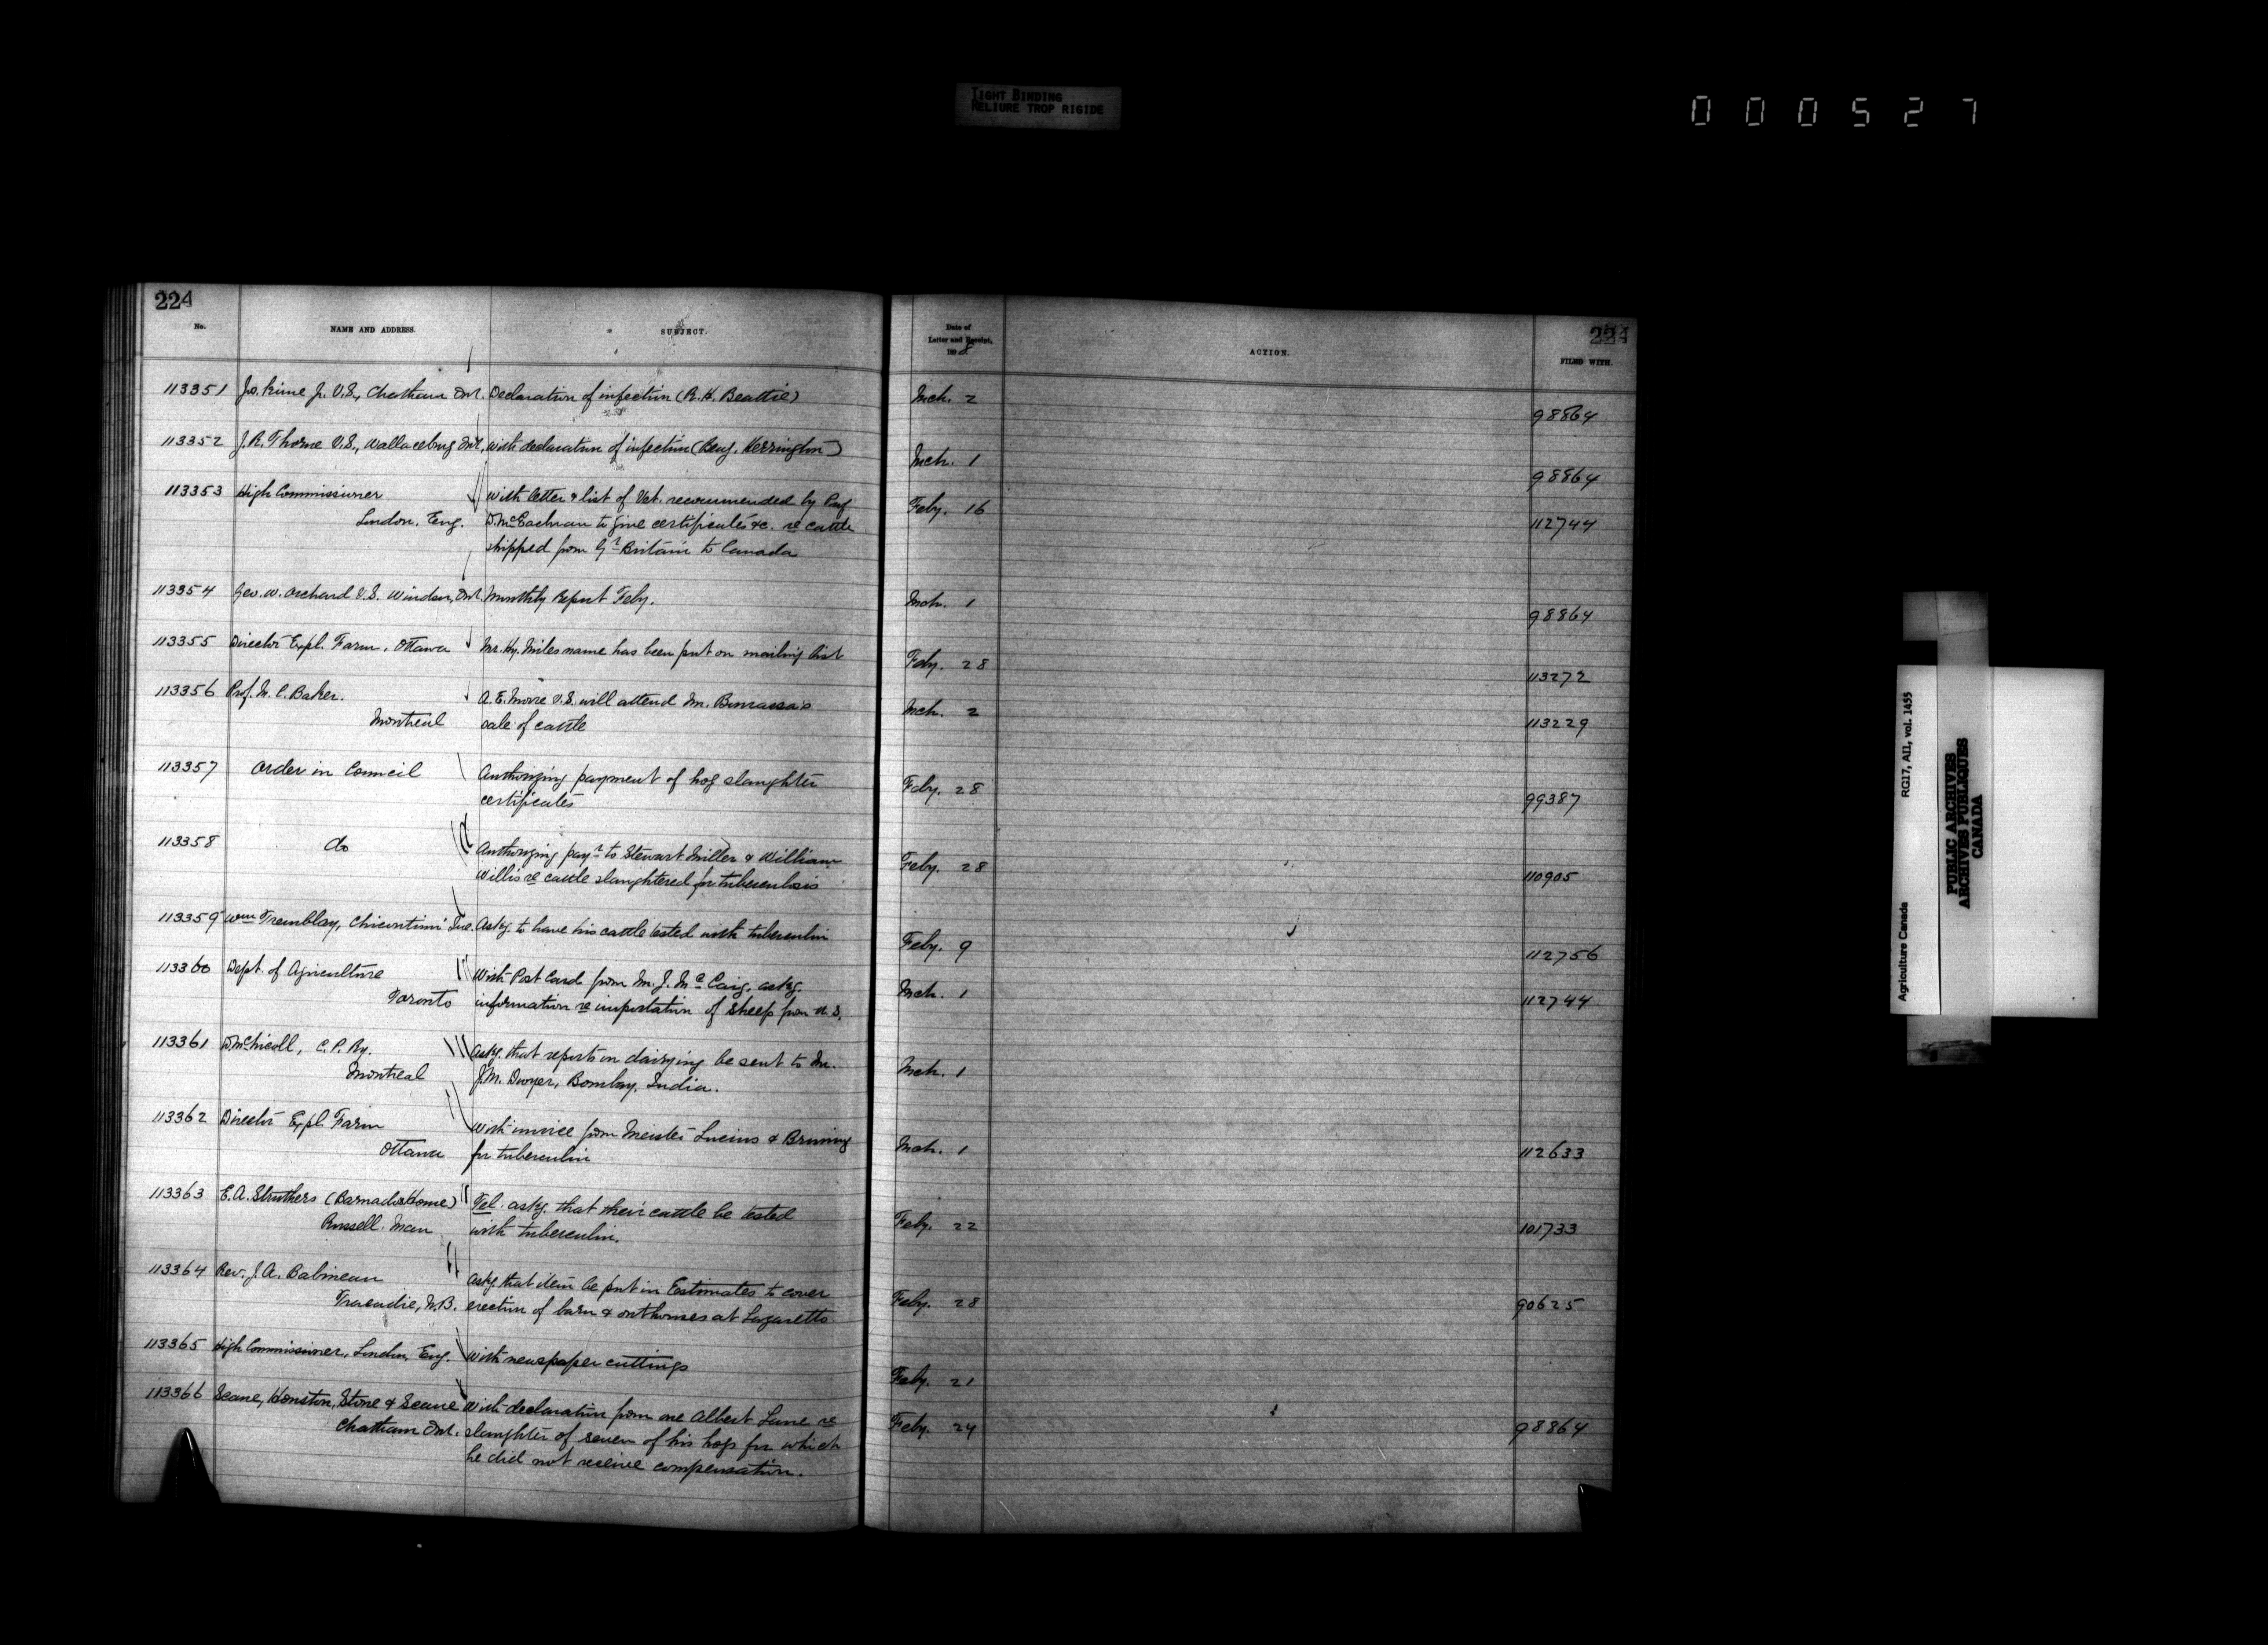 TIGHT BINDING
RELIURE TROP RIGIDE
000527
224
224
No.
NAME AND ADDRESS.
SUBJECT.
Date of
Letter and Receipt,
189
ACTION.
FILED WITH.
113351 Chatham Ont. Declaration of infection (R. H. Beattie) Mch. 2 98864
113352 J. R. Thorne V.S., Wallaceburg Ont. With declaration of infection (Benj. Kerrington) Mch. 1 98864
113353 High Commissioner With letter & list of Vet. recommended by Prof Feby. 16
London, Eng. D. McEachran to give certificates &c. re cattle 112744
shipped from Gt Britain to Canada
113354 Geo. W. Orchard V.S. Windsor, Ont. Monthly Report Feby. Mch. 1 98864
113355 Director Expl. Farm, Ottawa Mr. Hy. Miles name has been put on mailing list Feby. 28 113272
113356 Prof. M. C. Baker. A. E. Moore V.S. will attend Mr. Bourassa's Mch. 2
Montreal sale of cattle 113229
113357 Order in Council Authorizing payment of hog slaughter Feby. 28
certificates 99387
113358 do Authorizing payt to Stewart Miller & William Feby. 28
Willis re cattle slaughtered for tuberculosis 110905
113359 Wm Tremblay, Chicoutimi Que. Askg. to have his cattle tested with tuberculin Feby. 9 112756
113360 Dept. of Agriculture With Post Card from Mr. J. McCaig, askg. Mch. 1
Toronto information re importation of sheep from U.S. 112744
113361 D. McNicoll, C. P. Ry. Askg. that reports on dairying be sent to Mr. Mch. 1
Montreal J. M. Dwyer, Bombay, India.
113362 Director Expl. Farm With invoice from Meister Lucius & Bruning Mch. 1
Ottawa for tuberculin 112633
113363 E. A. Struthers (Barnado Home) Tel. askg. that their cattle be tested Feby. 22
Russell, Man with tuberculin. 101733
113364 Rev. J. A. Babineau askg. that item be put in Estimates to cover Feby. 28
Tracadie, N.B. erection of barn & outhouses at Lazaretto 90625
113365 High Commissioner, London, Eng. With newspaper cuttings Feby. 21
113366 Scane, Houston, Stone & Scane With declaration from one Albert Lane re Feby. 24
Chatham Ont. slaughter of seven of his hogs for which 98864
he did not receive compensation.
Agriculture Canada RG17, AII, vol. 1455
PUBLIC ARCHIVES
ARCHIVES PUBLIQUES
CANADA